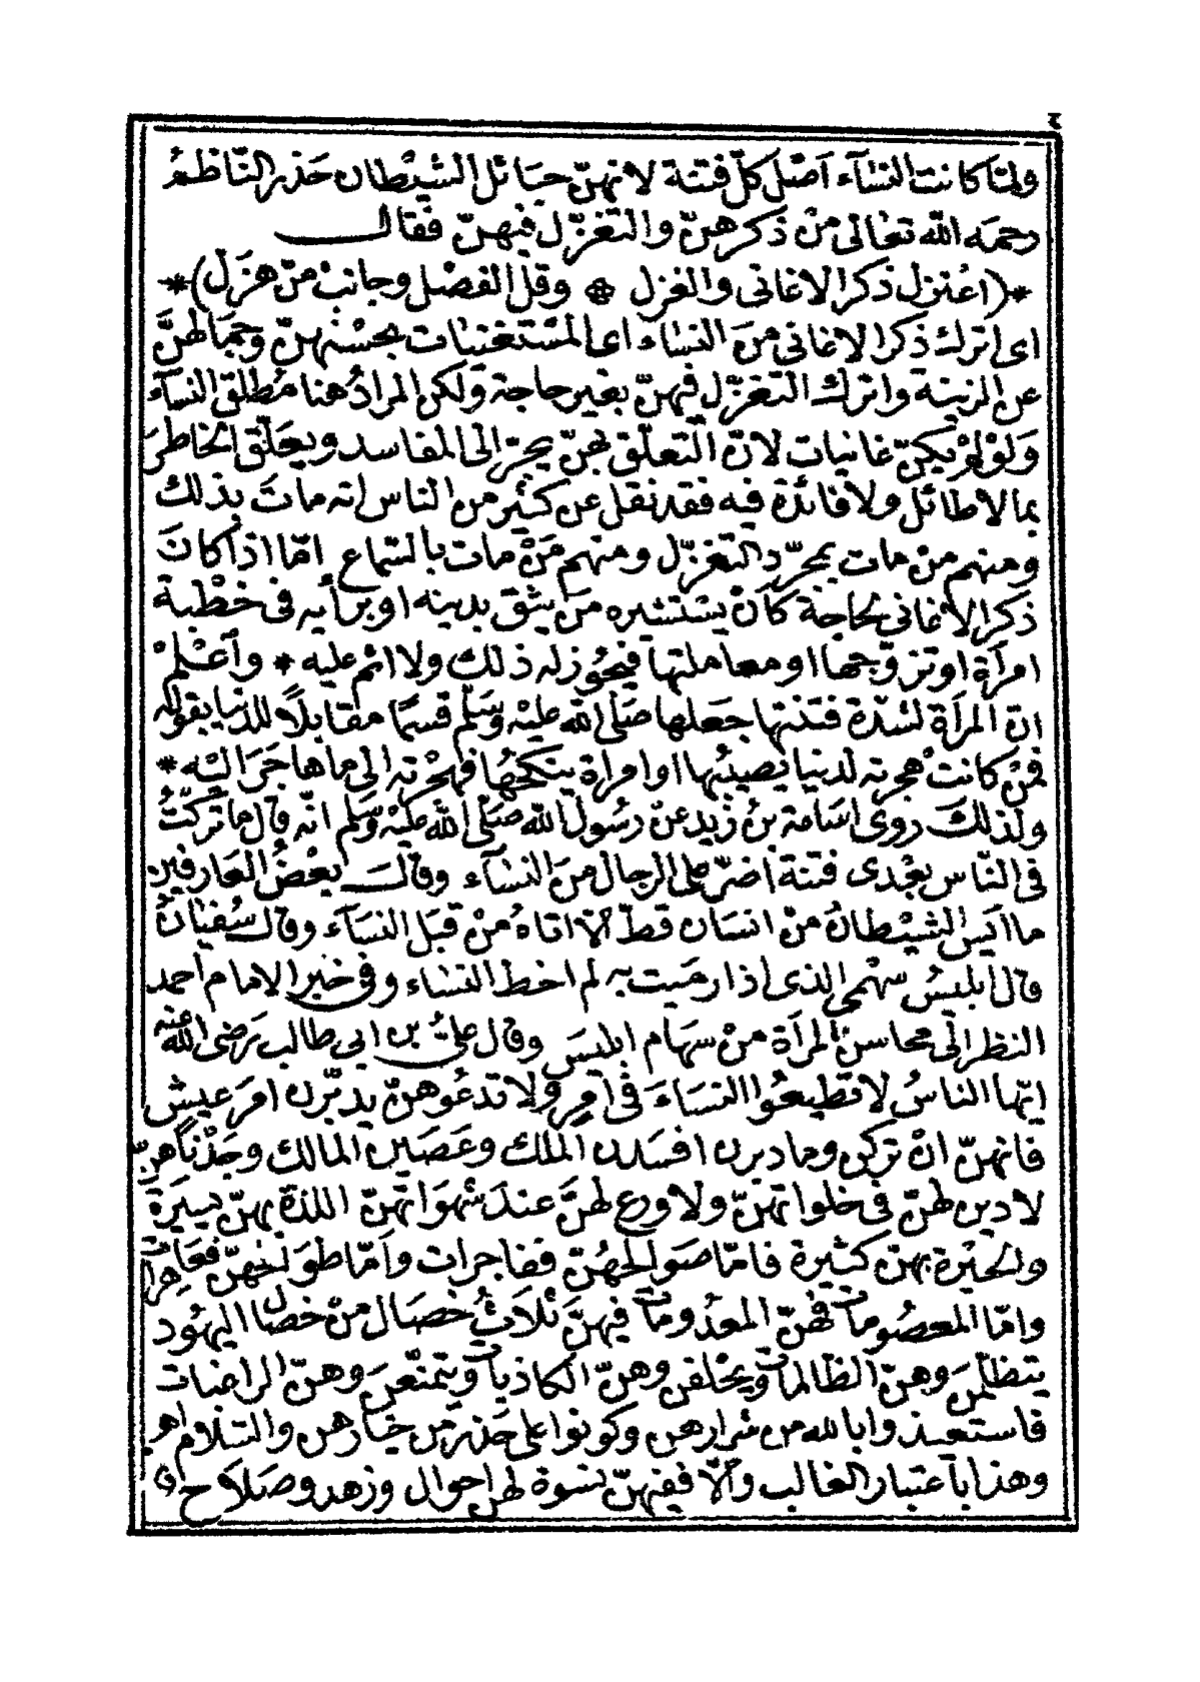 ٤
ولمّا كانت النسآء اصْل كلّ فتنة لانهنّ حبائل الشيْطان حَذر النّاظمُ
رحمَه الله تعالى منْ ذكرهنّ والتغزّل فيهنّ فقال
*(اعْتزل ذكر الاغانى والغزل ۞ وقل الفصْل وجانبْ منْ هزَل)*
اى اترك ذكر الاغانى منَ النسَاء اى المسْتغنيات بحسْنهنّ وجمَالهنَّ
عن الزينة واترك التغزّل فيهنّ بغير حاجة ولكن المرادُ هنا مُطلق النسآء
وَلوْ لمْ يكنّ غانيات لانّ التعلّق بهنّ يجرّ الى المفاسد ويعَلّق الخاطرَ
بما لاطائل ولا فائدة فيه فقد نقل عن كثير من الناس انه ماتَ بذلك
ومنهم منْ مات بمجرّد التغزّل ومنهم مَنْ مات بالسّماع امّا اذا كانَ
ذكر الاغانى لحاجة كأنْ يسْتشيره مَن يثق بدينه او برأيه فى خطْبة
امرأة او تزوّجها او معاملتها فيجُوز له ذلك ولا اثم عليه * وٱعْلمْ
انّ المرأة لشدّة فتنتها جعلها صَلى الله عليْه وَسَلّم قسمًا مقابلًا للدنيا بقوله
فمنْ كانتْ هجرته لدنيا يصيبُها او امرأة ينكحُها فهجْرته الى ما هاجَرَ اليْه *
ولذلكَ روى اسَامة بنُ زيد عنْ رسُول الله صَلى الله عليْه وَسَلم انّه قال ما تركتُ
فى النّاس بعْدى فتنة اضرّ على الرجال منَ النسَآء وقالَ بعْضُ العَارفين
ما ايسَ الشيْطانُ منْ انسَان قطّ الّا اتاهُ منْ قبَل النسَآء وقال سُفيَانُ
قال ابليسُ سهْمى الذى اذا رمَيت به لم اخط النسَاء وفى خبر الامام احمد
النظر الى محاسن المرأة منْ سهَام ابليسَ وقال علىُّ بن ابى طالب رَضى الله عنه
ايّها الناسُ لا تطيعُوا النسَاءَ فى امر ولا تدعُوهنّ يدبّرن امرَ عيش
فانهنّ انْ تركن وما ديرن افسَدن الملك وعَصَين المالك وجَدْناهنّ
لا دين لهنّ فى خلواتهنّ ولا ورع لهنَّ عندَ شهوَاتهنّ اللذة بهنّ يسيَرة
والحيْرة بهنّ كثيرة فامّا صَوالحهُنّ ففاجرات وأمّا طوَالحهنّ فعَاهرات
وامّا المعصُومات فهُنّ المعدُومات فيهنَّ ثلاثُ خصَال منْ خصَال اليهُود
يتظلّمنَ وهنّ الظالمات ويحْلفن وهنّ الكاذبات ويتمنّعنَ وهنّ الراغبات
فاستعيذوا بالله من شرارهن وكونوا على حَذر من خيَارهن والسَلام اهـ
وهذا باعتبار الغالب وٱلّا ففيهنّ نسْوة لهن احوال وزهد وصَلاح